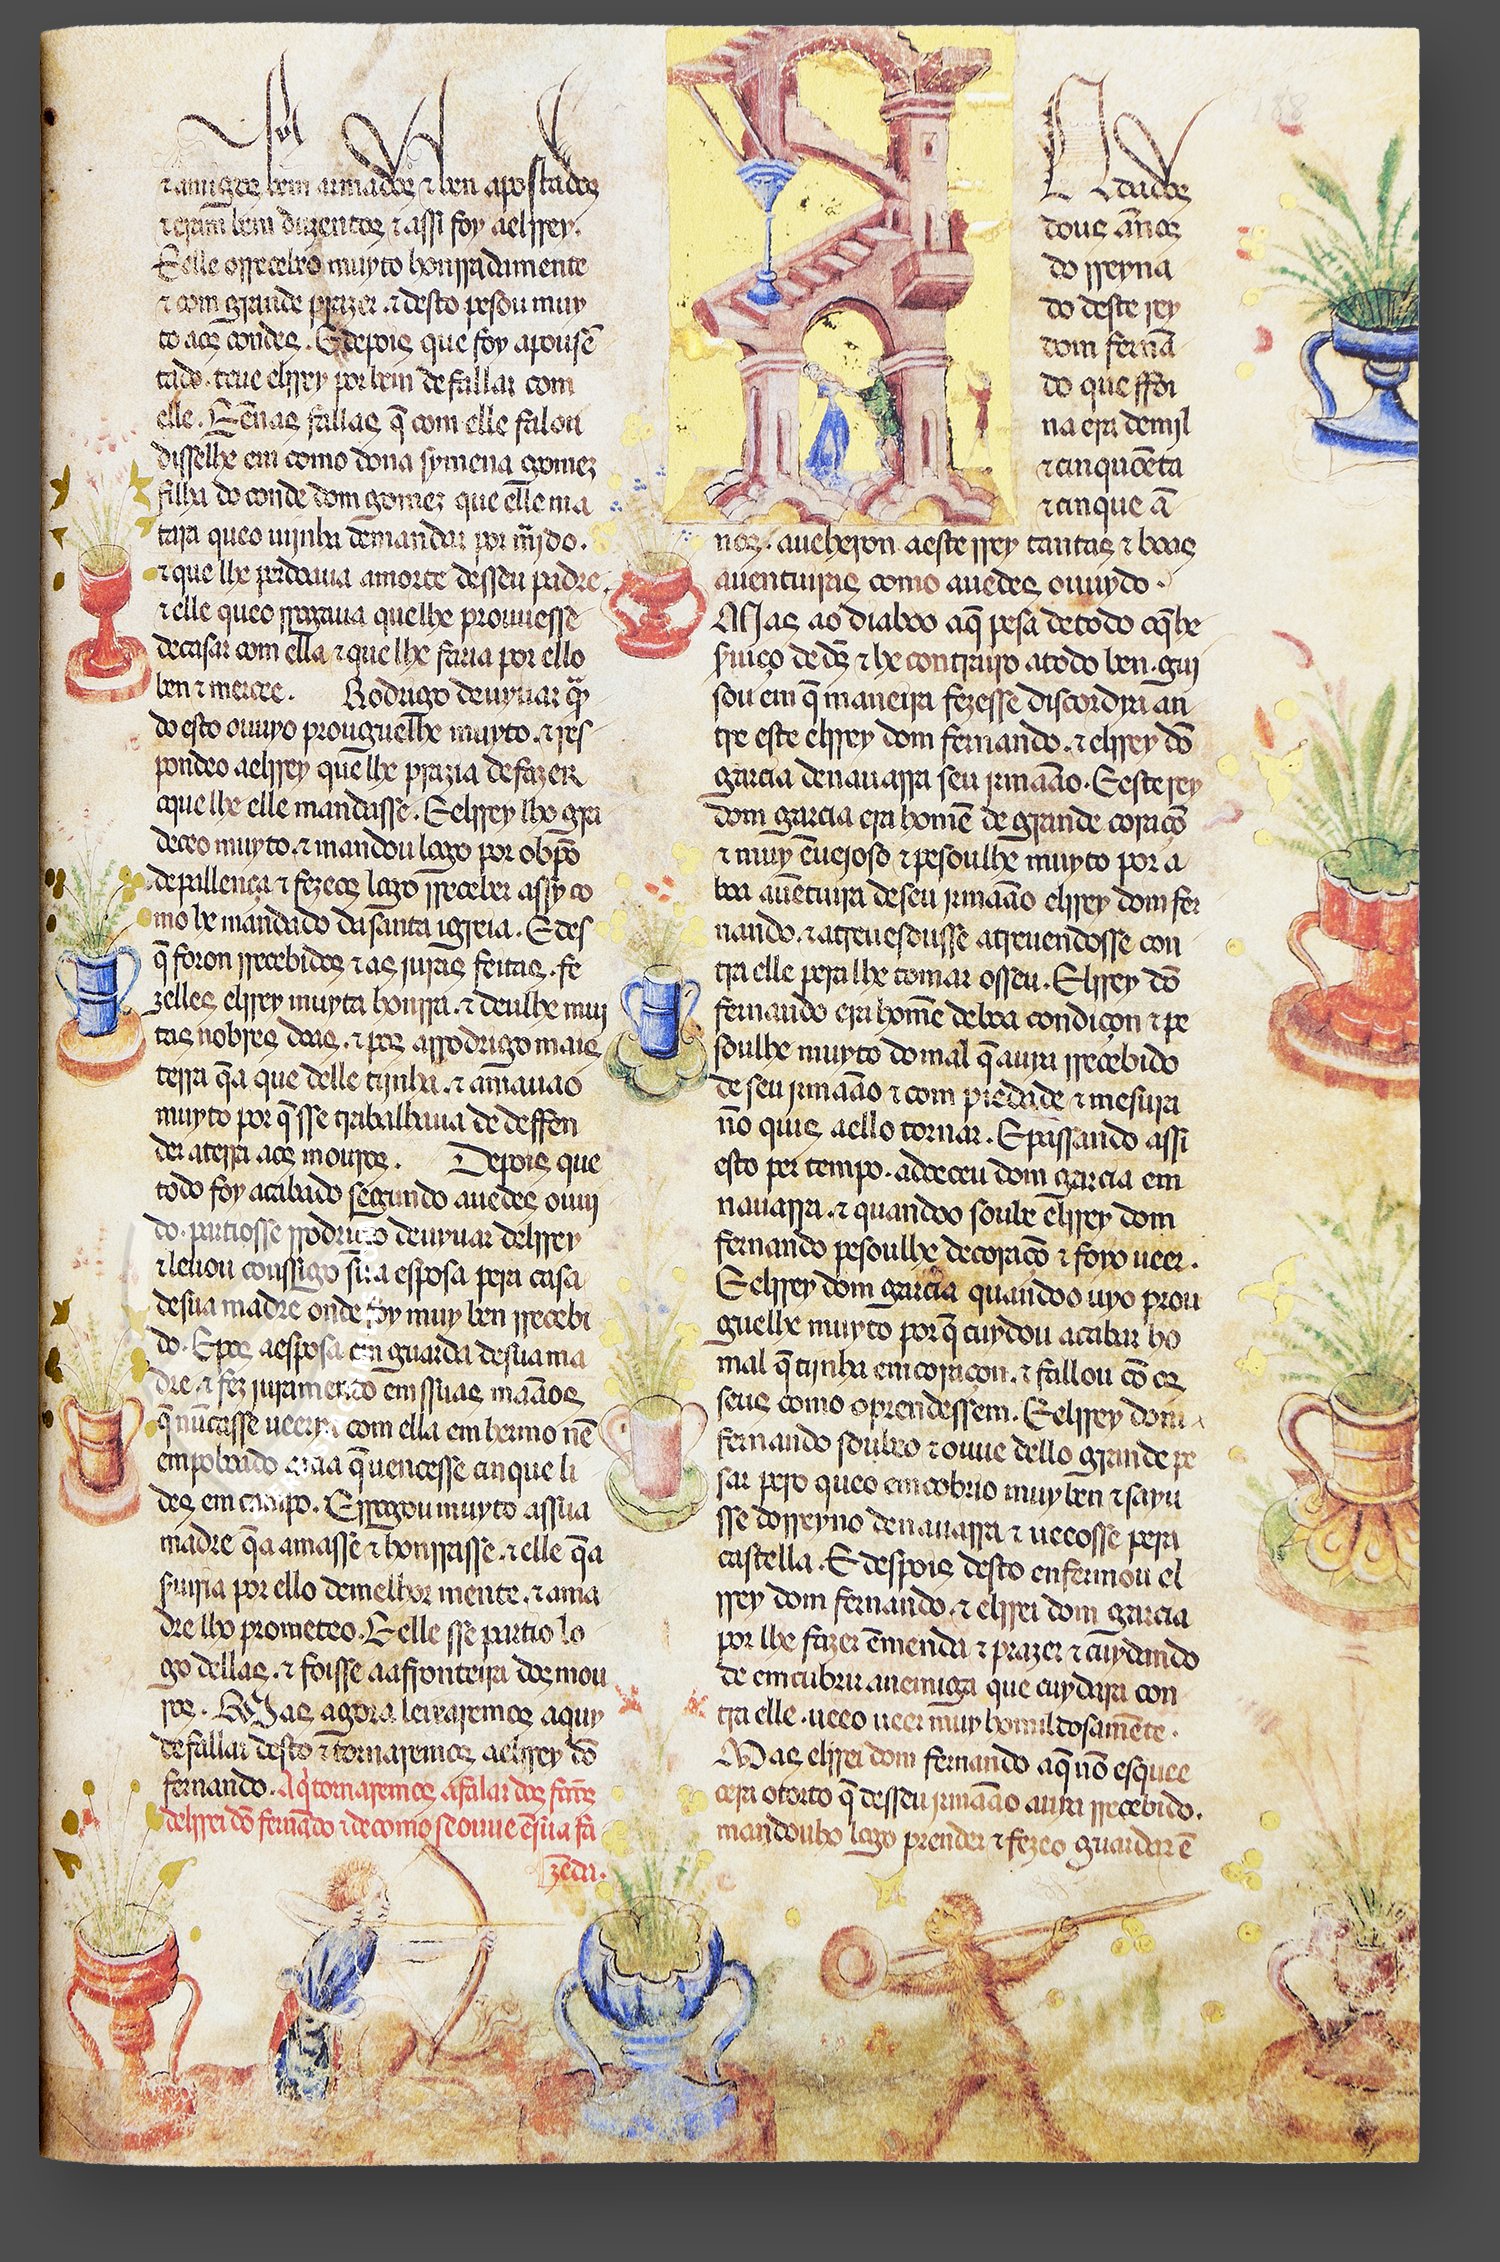 ⁊ amigos bem armados ⁊ ben apostados
⁊ eram bem duzentos ⁊ assi foy aelrrey.
E elle orrecebeo muyto honrradamente
⁊ com grande prazer .⁊ desto pesou muy
to aos condes . E depois que foy apousẽ
tado . teue elrrey por bem de fallar com
elle . E ẽnas fallas q̃ com elle falou
disselhe em como dona symena gomez
filha do conde dom gomez que elle ma
tara queo uijnha demandar por m̃ido .
⁊ que lhe perdoaua amorte desseu padre .
⁊ elle queo rrogaua quelhe prouuesse
decasar com ella ⁊ que lhe faria por ello
ben ⁊ mercee . Rodrigo deuyuar q̃n
do esto ouuyo prouguelhe muyto .⁊ rres
pondeo aelrrey quelhe prazia defazer
oque lhe elle mandasse . E elrrey lho gra
deceo muyto .⁊ mandou logo por obp̃o
depallença ⁊ fezeos logo rreceber assy co
mo he mandado da santa igreia . E des
q̃ foron rrecebidos ⁊ as juras feitas . fe
zelles elrrey muyta honrra .⁊ deulhe mui
tas nobres doas .⁊ pos arrodrigo mais
terra q̃a que delle tijnha .⁊ amauao
muyto por q̃sse trabalhaua de deffen
der aterra aos mouros . Depois que
todo foy acabado segundo auedes ouui
do . partiosse rrodrigo deuyuar delrrey
⁊ leuou conssigo sua esposa pera casa
desua madre onde foy muy ben rrecebi
do . E pos aesposa em guarda desua ma
dre .⁊ fez juramento em suas maãos
q̃ nũcasse ueerya com ella em hermo nẽ
em poboado ataa q̃ uencesse cinque li
des em campo . E rrogou muyto assua
madre q̃a amasse ⁊ honrrasse .⁊ elle q̃a
suiria por ello demelhor mente .⁊ ama
dre lho prometeo . E elle sse partio lo
go dellas .⁊ foisse aafronteira dos mou
ros . Mas agora leixaremos aquy
defallar desto ⁊ tornaremos aelrrey dõ
fernando . Aq̃ tornaremos afalar dos fectos
delrrei dõ fernãdo ⁊ decomo seouue ẽsua fa
zẽda .
dous ãnos
do rreyna
do deste rey
dom fernã
do que ffoi
na era demil
⁊ cinquoẽta
⁊ cinque ã
nos . aueheron aeste rrey tantas ⁊ boas
auenturas como auedes ouuydo .
Mas ao diaboo aq̃ pesa de todo oq̃ he
suiço de ds̃ ⁊ he contrairo atodo ben . gui
sou em q̃ maneira fezesse discordya an
tre este elrrey dom fernando .⁊ elrrey dõ
garcia denauarra seu jrmaão . E este rey
dom garcia era homẽ de grande coraçõ
⁊ muy ẽuejoso ⁊ pesoulhe muyto por a
boa auẽtuira deseu jrmaão elrrey dom fer
nando .⁊ atreueousse atreuendosse con
tra elle pera lhe tomar osseu . Elrrey dõ
fernando era homẽ deboa condiçon ⁊ pe
soulhe muyto do mal q̃ auya rrecebido
de seu jrmaão ⁊ com piedade ⁊ mesura
nõ quis aello tornar . E passando assi
esto per tempo . adoeceu dom garcia em
nauarra .⁊ quandoo soube elrrey dom
fernando pesoulhe decoraçõ ⁊ foyo ueer .
E elrrey dom garcia quandoo uyo prou
guelhe muyto por q̃ cuydou acabar ho
mal q̃ tijnha em coraçon .⁊ fallou cõ os
seus como oprendessem . E elrrey dom
fernando soubeo ⁊ ouue dello grande pe
sar pero queo emcobrio muy ben ⁊ sayu
sse dorreyno denauarra ⁊ ueeosse pera
castella . E despois desto enfermou el
rrey dom fernando .⁊ elrrei dom garcia
por lhe fazer ẽmenda ⁊ prazer ⁊ cuydando
de emcubrir anemiga que cuydara con
tra elle . ueeo ueer muy homildosamẽte .
Mas elrrei dom fernando aq̃ nõ esquee
cera otorto q̃ desseu jrmaão auya rrecebido .
mandouho logo prender ⁊ fezeo guardar ẽ